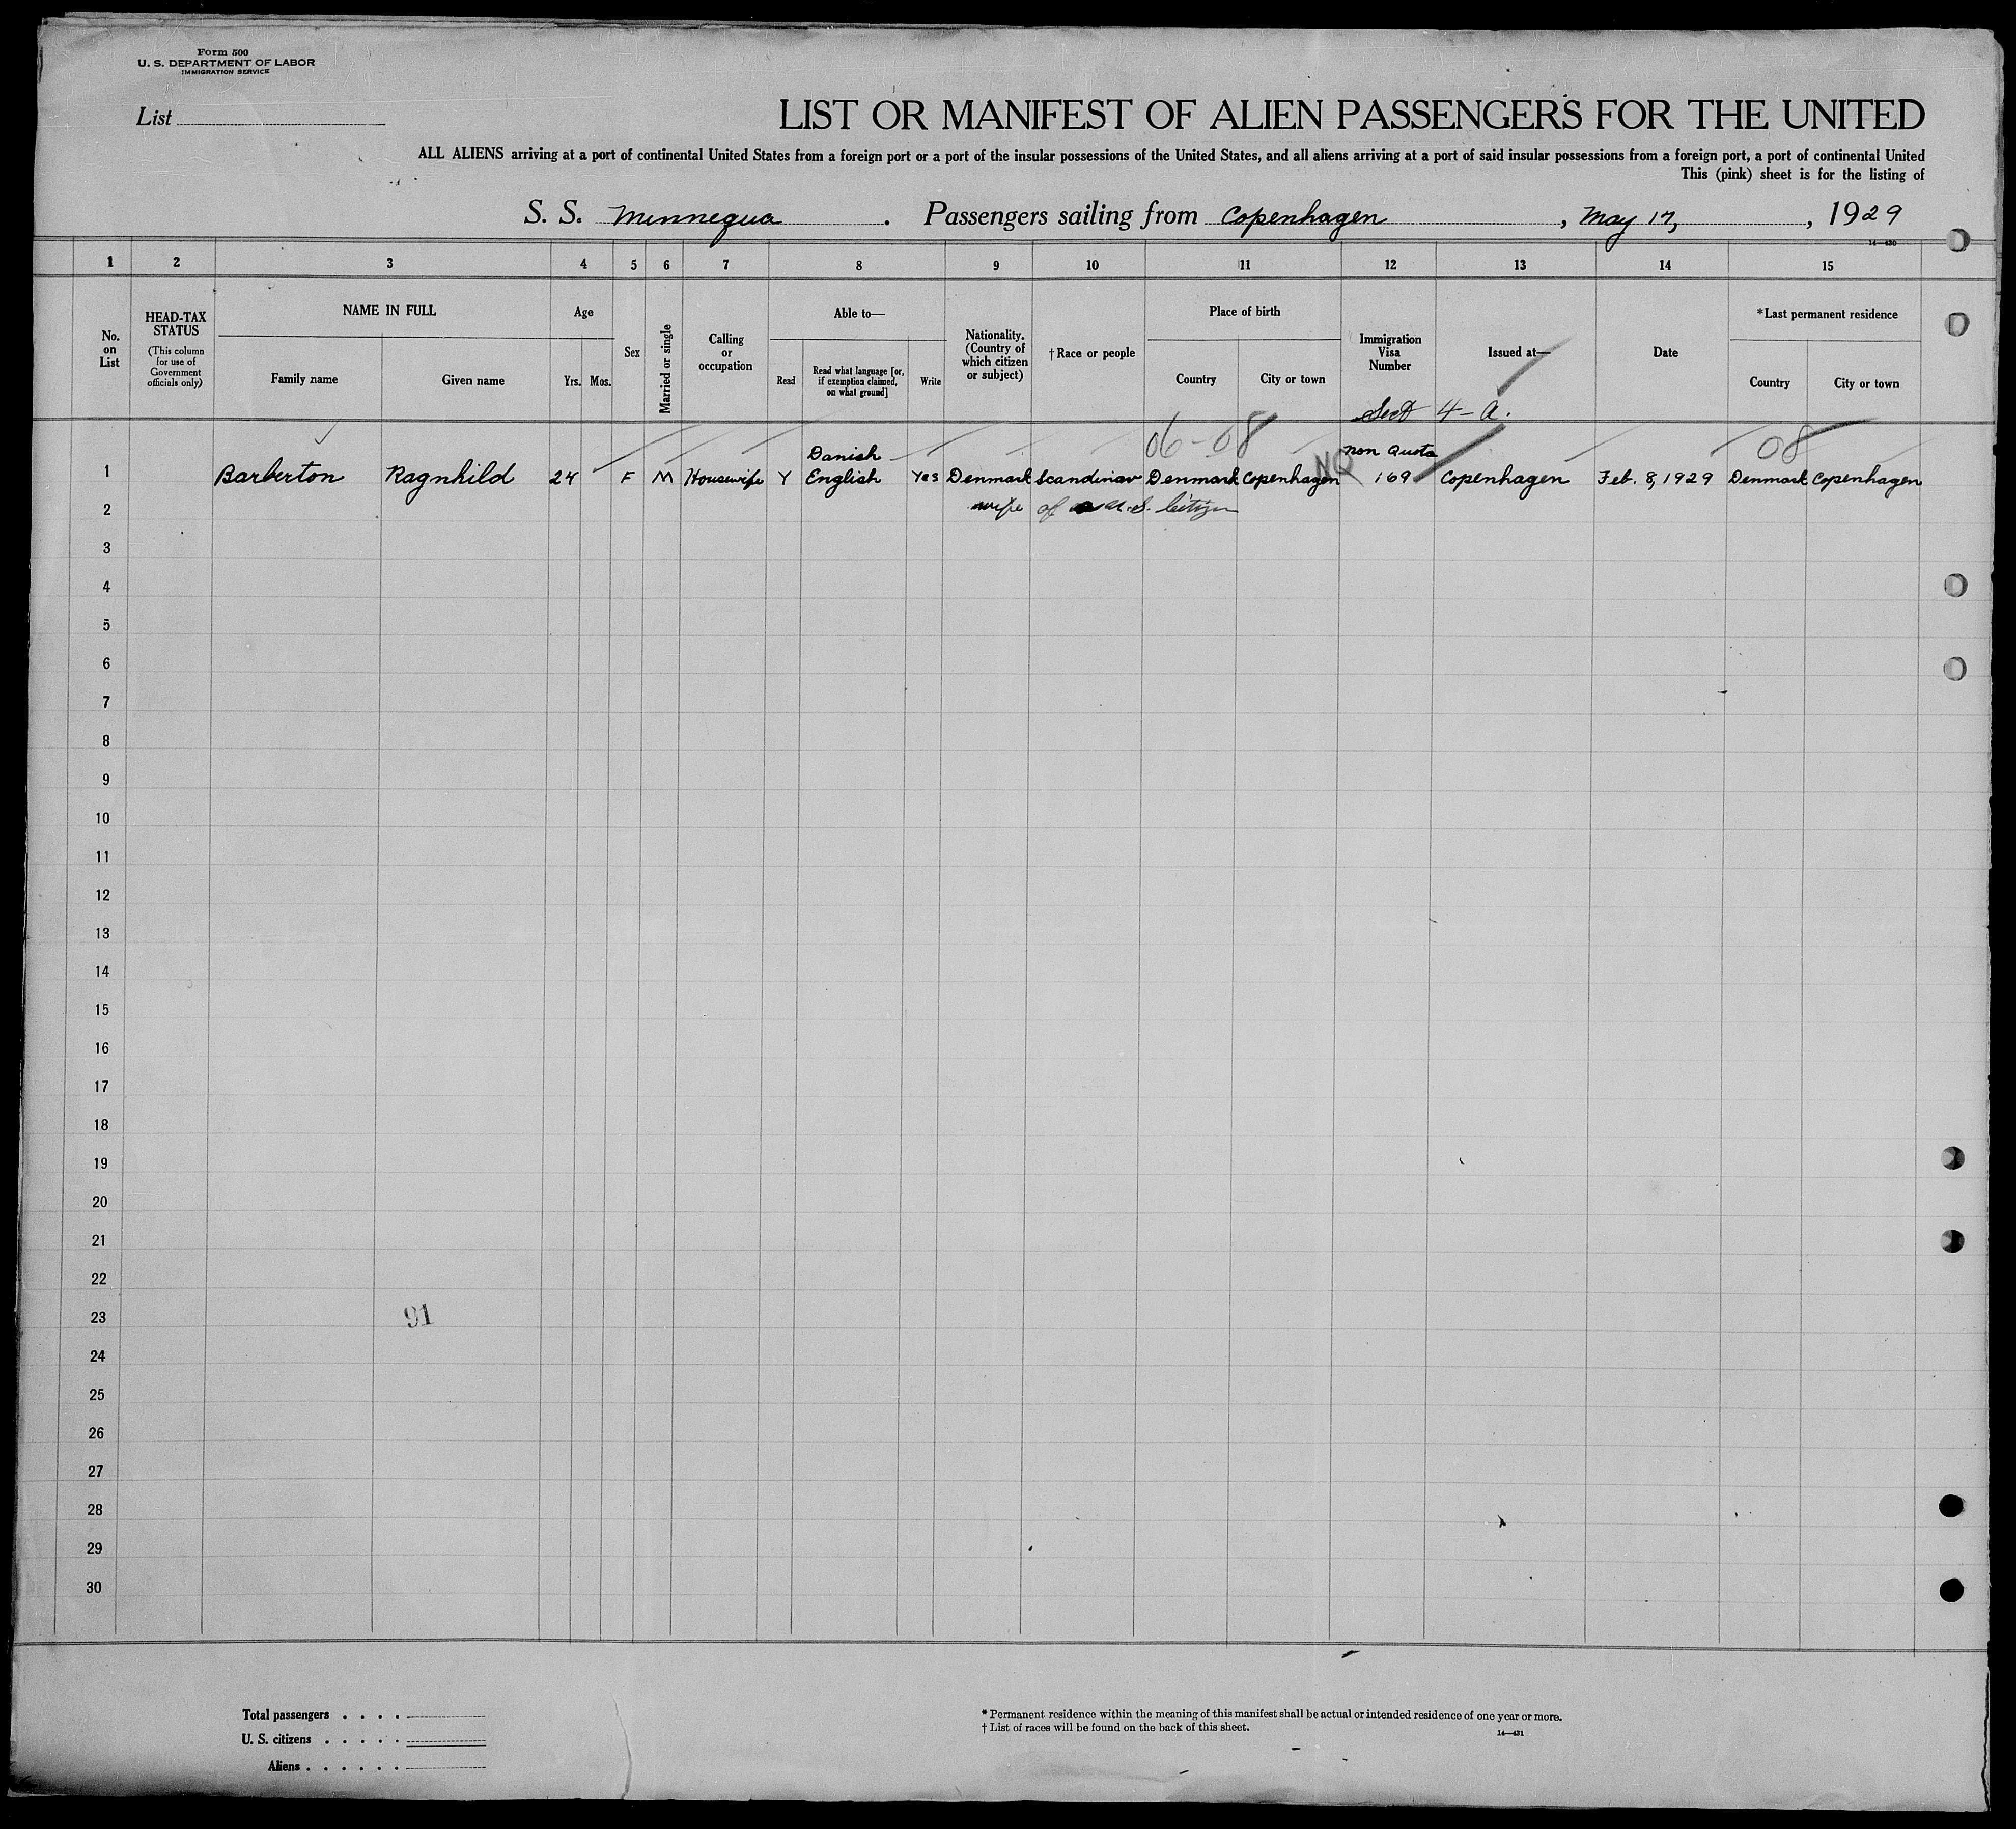 Form 500
U. S. DEPARTMENT OF LABOR
IMMIGRATION SERVICE
List
LIST OR MANIFEST OF ALIEN PASSENGERS FOR THE UNITED
ALL ALIENS arriving at a port of continental United States from a foreign port or a port of the insular possessions of the United States, and all aliens arriving at a port of said insular possessions from a foreign port, a port of continental United
This (pink) sheet is for the listing of
S. S. Minnequa . Passengers sailing from Copenhagen , May 17, , 1929
14—430
1 2 3 4 5 6 7 8 9 10 11 12 13 14 15
No. on List
HEAD-TAX STATUS
(This column for use of Government officials only)
NAME IN FULL
Family name Given name
Age
Yrs. Mos.
Sex
Married or single
Calling or occupation
Able to—
Read
Read what language [or, if exemption claimed, on what ground]
Write
Nationality. (Country of which citizen or subject)
†Race or people
Place of birth
Country City or town
Immigration Visa Number
Issued at—
Date
*Last permanent residence
Country City or town
Sect 4-a.
06-08
08
Danish
non Quota
NQ
1 Barberton Ragnhild 24 F M Housewife Y English Yes Denmark Scandinav Denmark Copenhagen 169 Copenhagen Feb. 8, 1929 Denmark Copenhagen
2 wife of U.S. Citizen
3
4
5
6
7
8
9
10
11
12
13
14
15
16
17
18
19
20
21
22
23
91
24
25
26
27
28
29
30
Total passengers . . . .
U. S. citizens . . . . .
Aliens . . . . . .
* Permanent residence within the meaning of this manifest shall be actual or intended residence of one year or more.
† List of races will be found on the back of this sheet.
14—431